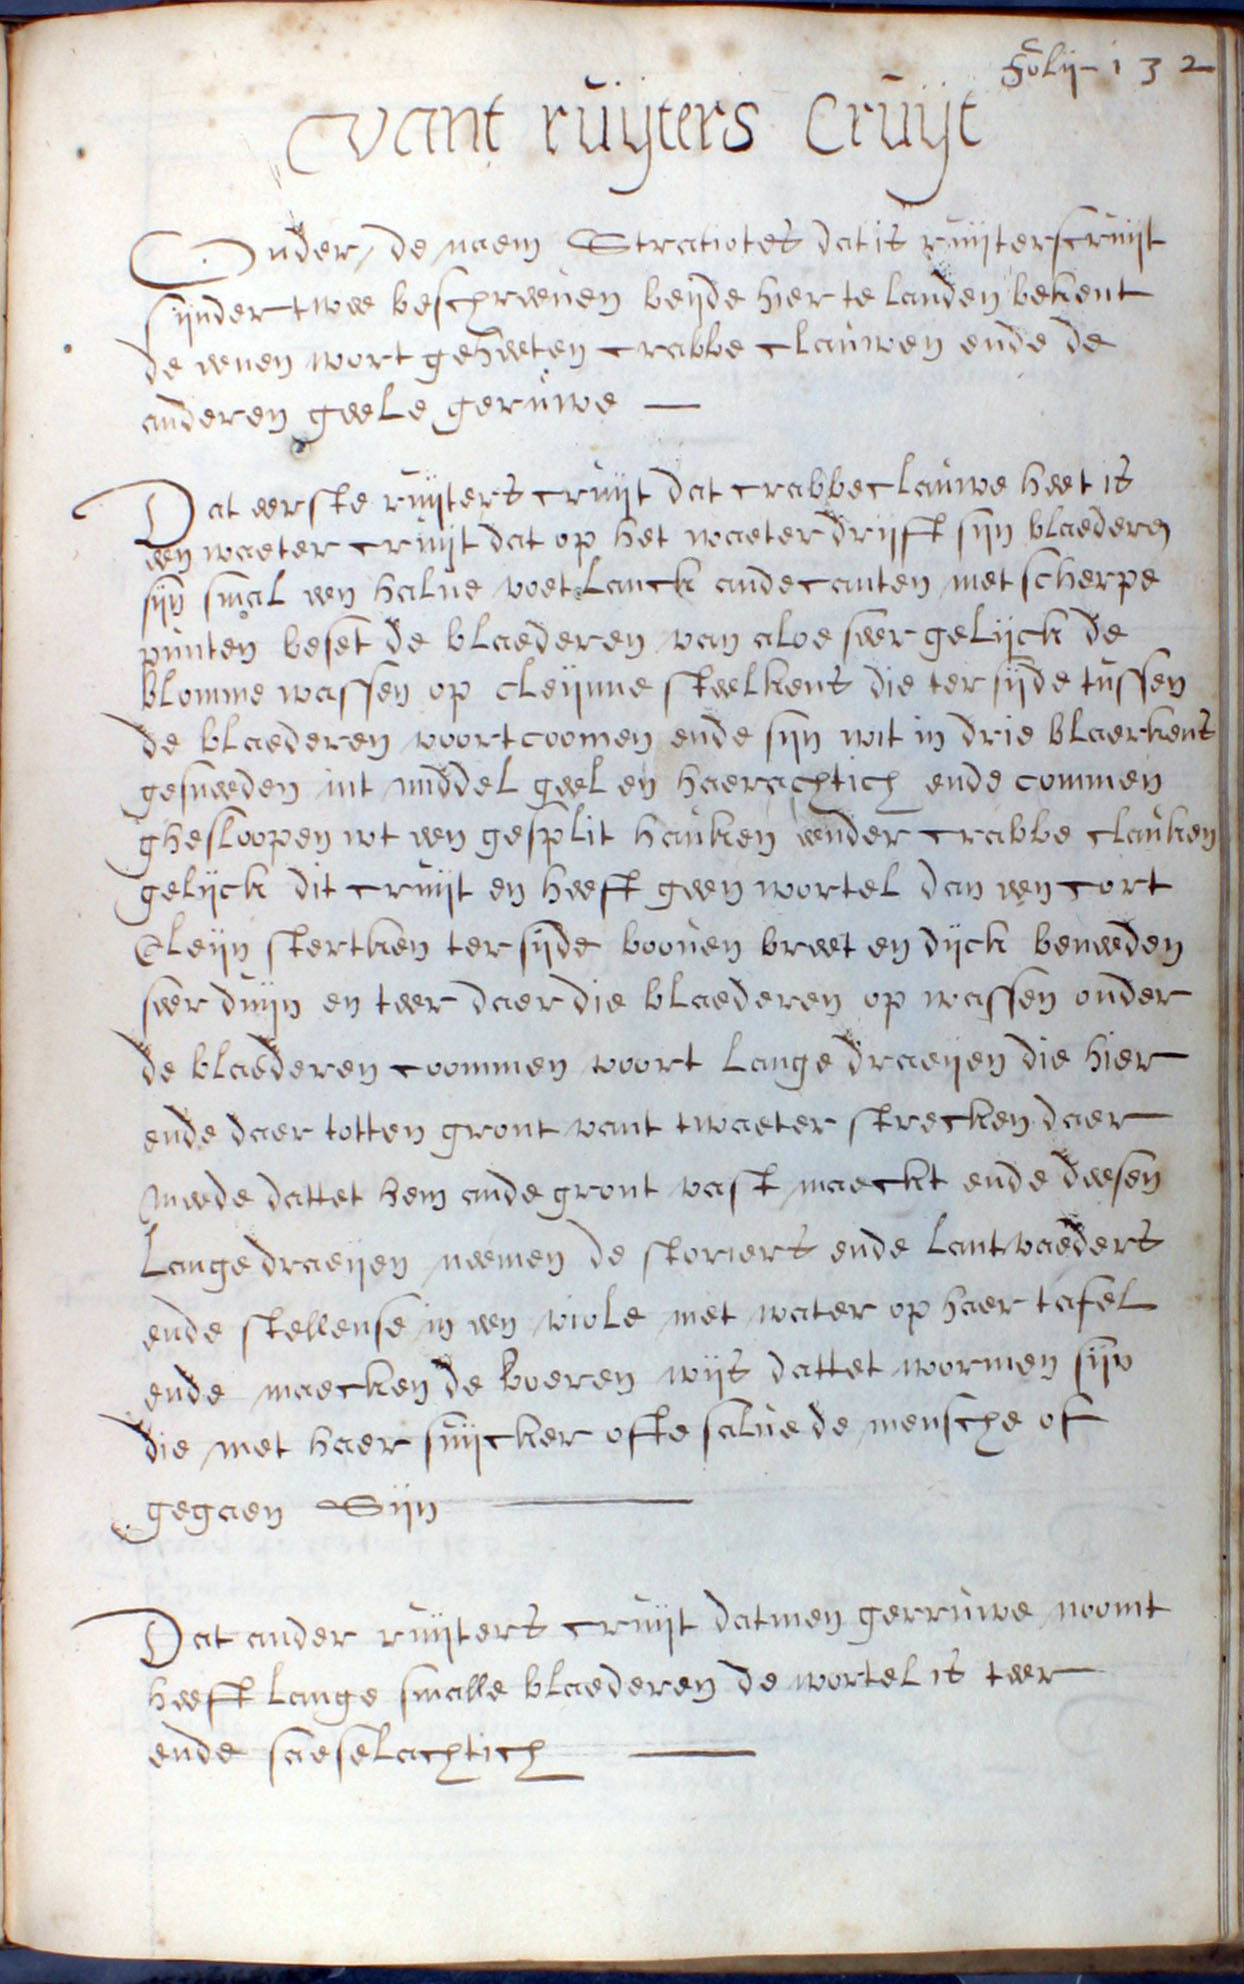 Folij 132
vant ruijters Cruijt
Onder de naem Stratiotes dat is ruijterscruijt
sijnder twee beschreeven beijde hier te landen bekent
de eenen wort geheeten crabbe clauwen ende de
anderen geele geruwe
Dat eerste ruijters cruijt dat crabbeclauwe heet is
een waeter cruijt dat op het waeter drijft sijn blaederen
sijn smal een halve voet lanck ande canten met scherpe
punten beset de blaederen van aloe seer gelijck de
blomme wassen op cleijnne steelkens die ter sijde tussen
de blaederen voortcoomen ende sijn wit in drie blaerkens
gesneeden int middel geel en haerachtich ende commen
ghesloopen wt een gesplit hauken eender crabbe clauken
gelijck dit cruijt en heeft geen wortel dan een cort
Cleijn stertken ter sijde booven breet en dijck beneeden
seer duijn en teer daer die blaederen op wassen onder
de blaederen coommen voort lange draeijen die hier
ende daer totten gront vant twaeter strecken daer
meede dattet hem ande gront vast maeckt ende deesen
lange draeijen neemen de storiers ende lantvaeders
ende stellense in een viole met water op haer tafel
ende maecken de boeren wijs dattet wormen sijn
die met haer suijcker ofte salve de mensche of
gegaen Sijn
Dat ander ruijters cruijt datmen gerruwe noomt
heeft lange smalle blaederen de wortel is teer
ende saeselachtich